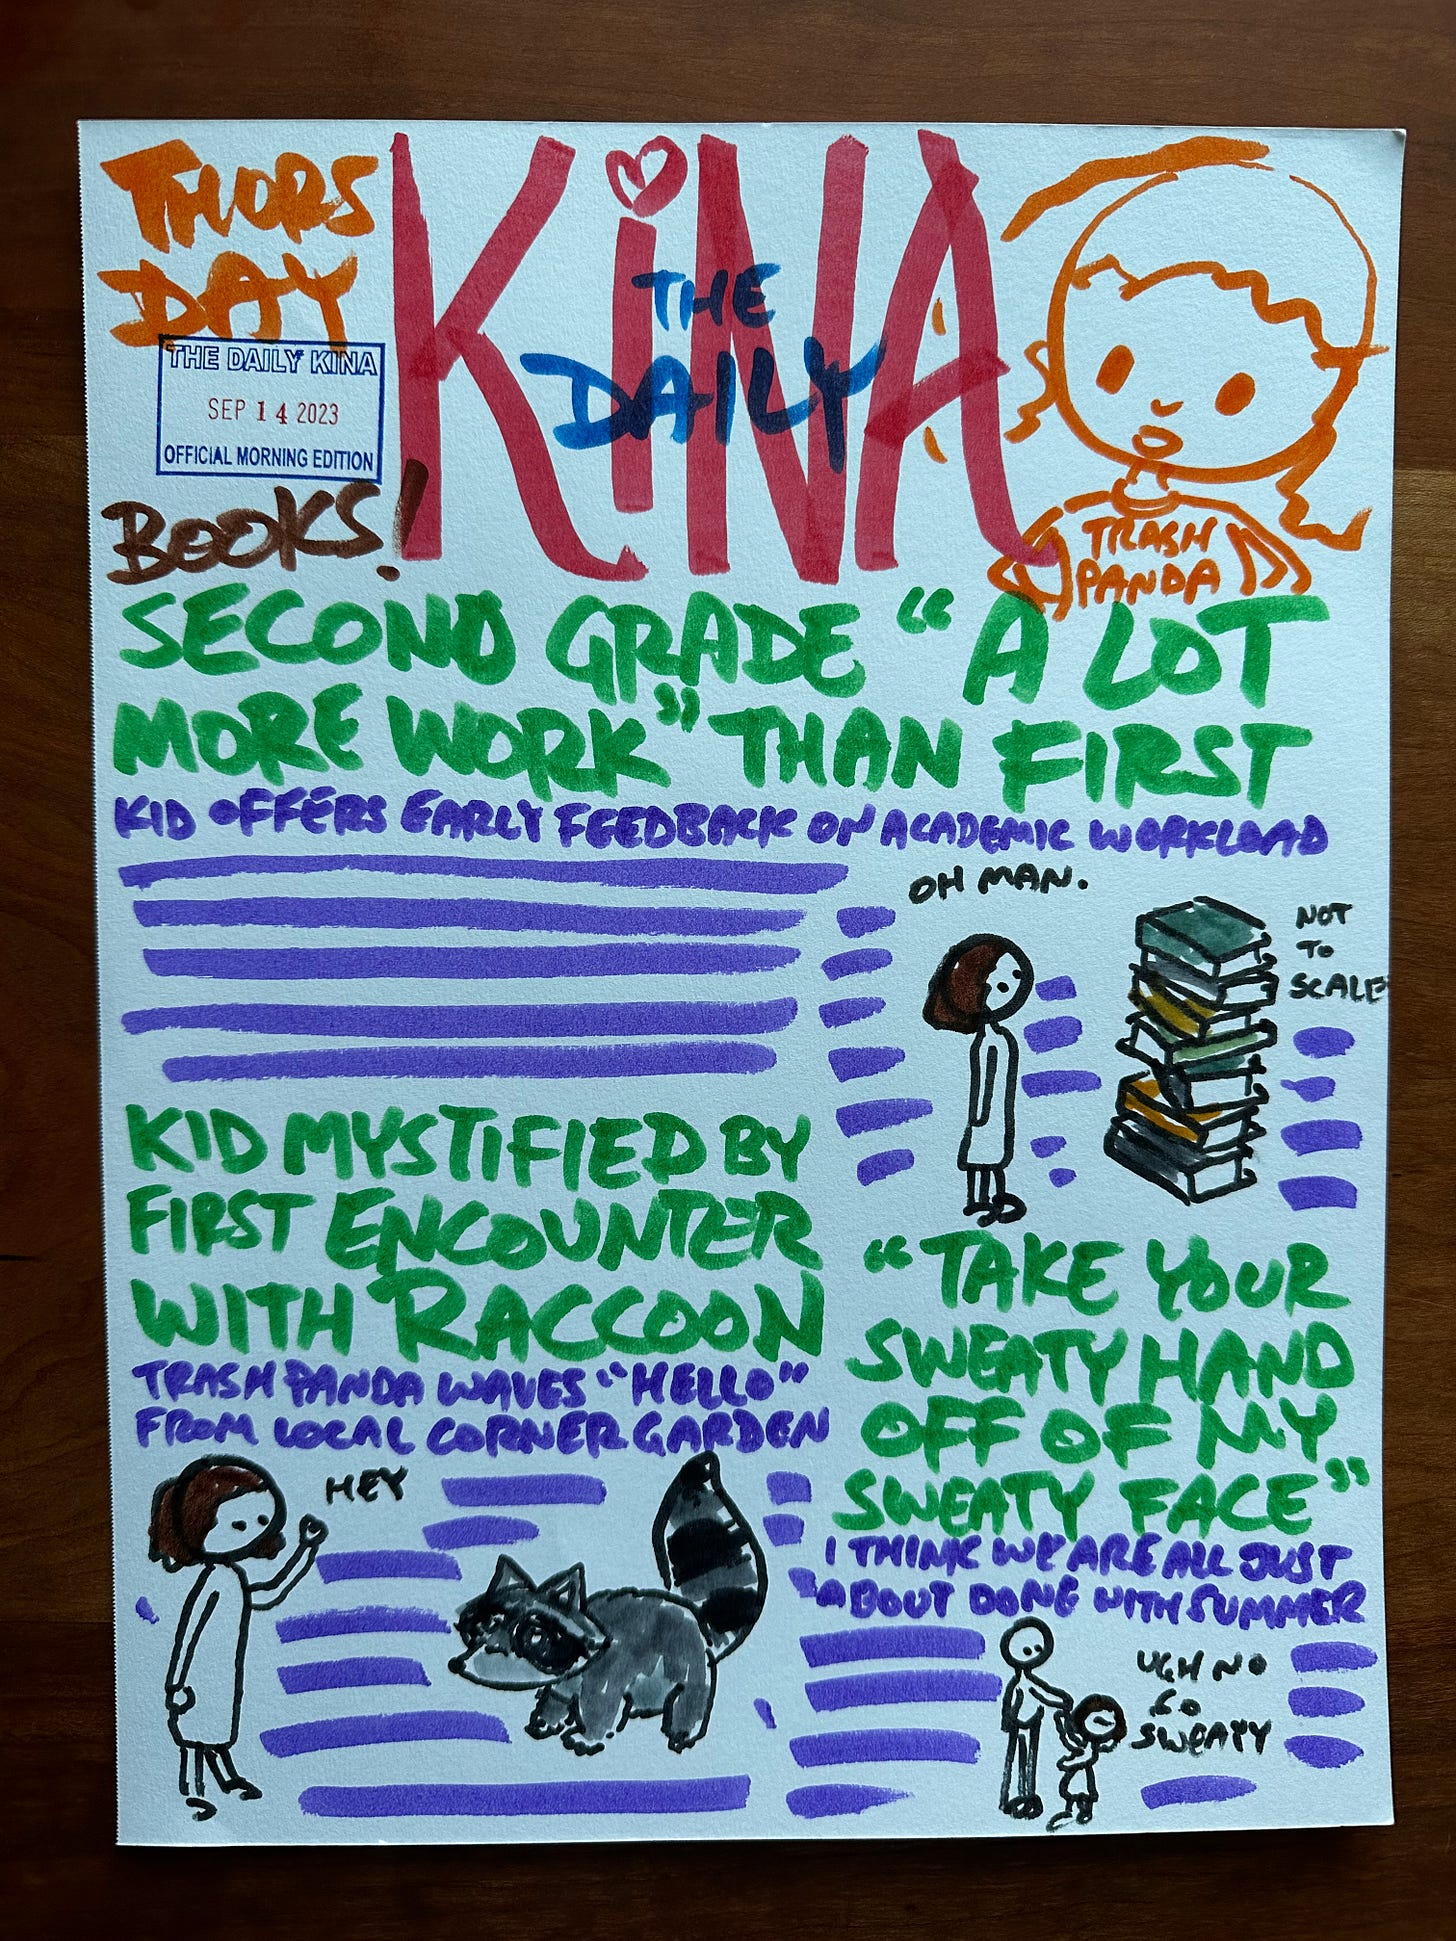 THURS
DAY
THE DAILY KINA
SEP 14 2023
OFFICIAL MORNING EDITION
BOOKS!
KiNA
THE
DAILY
TRASH
PANDA
SECOND GRADE “A LOT
MORE WORK” THAN FIRST
KID OFFERS EARLY FEEDBACK ON ACADEMIC WORKLOAD
OH MAN.
NOT
TO
SCALE
KID MYSTIFIED BY
FIRST ENCOUNTER
WITH RACCOON
TRASH PANDA WAVES “HELLO”
FROM LOCAL CORNER GARDEN
HEY
“TAKE YOUR
SWEATY HAND
OFF OF MY
SWEATY FACE”
I THINK WE ARE ALL JUST
ABOUT DONE WITH SUMMER
UGH NO
SO
SWEATY